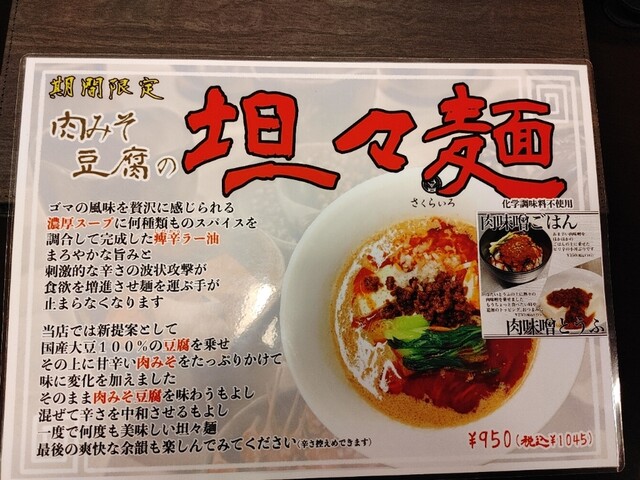 期間限定
肉みそ
豆腐の
坦々麺
さくらいろ
化学調味料不使用
ゴマの風味を贅沢に感じられる
濃厚スープに何種類ものスパイスを
調合して完成した痺辛ラー油
まろやかな旨みと
刺激的な辛さの波状攻撃が
食欲を増進させ麺を運ぶ手が
止まらなくなります
当店では新提案として
国産大豆100%の豆腐を乗せ
その上に甘辛い肉みそをたっぷりかけて
味に変化を加えました
そのまま肉みそ豆腐を味わうもよし
混ぜて辛さを中和させるもよし
一度で何度も美味しい坦々麺
最後の爽快な余韻も楽しんでみてください(辛さ控えめできます)
肉味噌ごはん
肉味噌とうふ
¥950(税込¥1045)